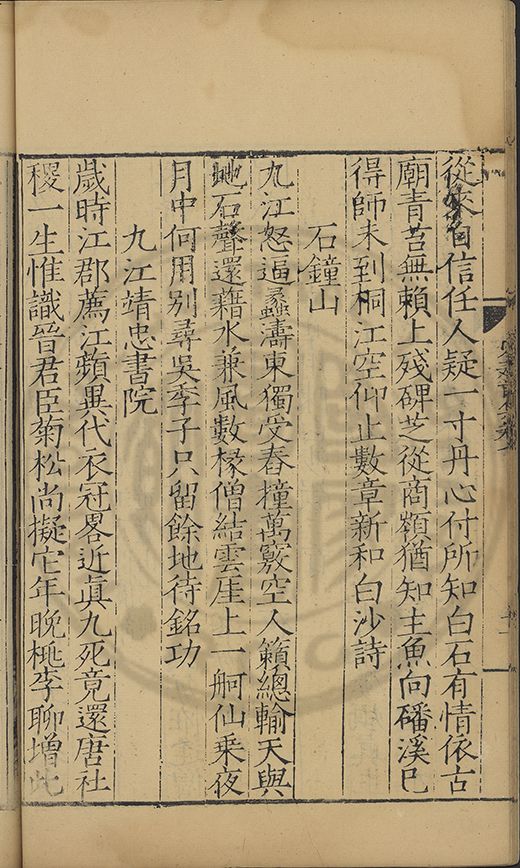 從來自信任人疑一寸丹心付所知白石有情依古
廟青苔無賴上殘碑芝從商嶺猶知主魚向磻溪已
得師未到桐江空仰止數章新和白沙詩
石鐘山
九江怒逼蠡濤東獨受舂撞萬竅空人籟總輸天與
地石聲還藉水兼風數椽僧結雲崖上一舸仙乘夜
月中何用別尋吳季子只留餘地待銘功
九江靖忠書院
歲時江郡薦江蘋異代衣冠畧近眞九死竟還唐社
稷一生惟識晉君臣菊松尚擬它年晚桃李聊增此